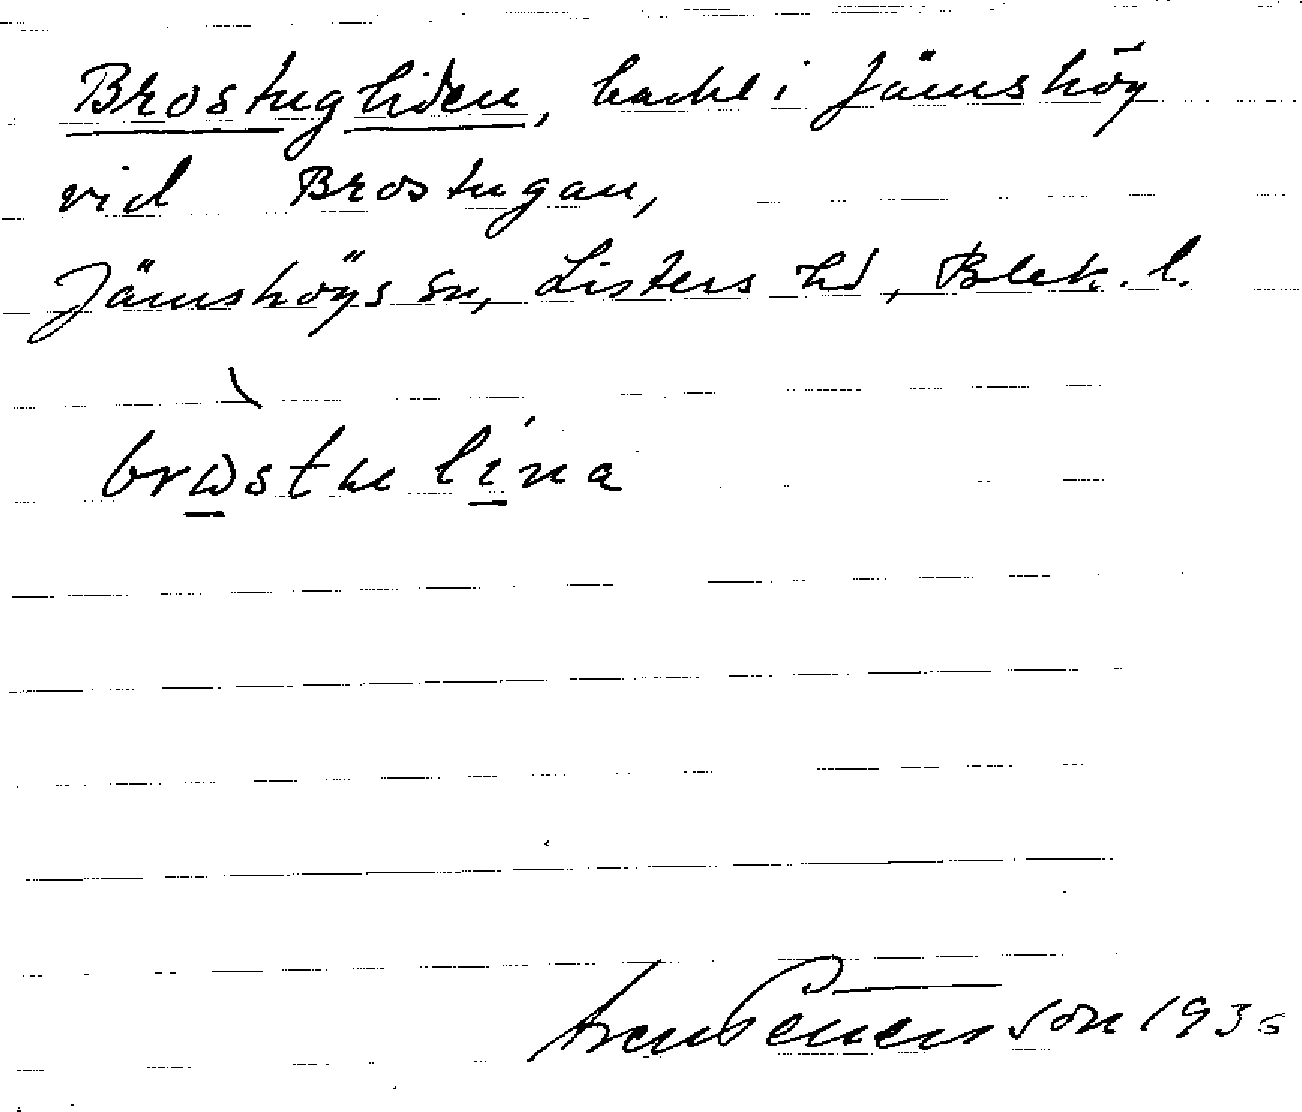 Brostugliden, backe i Jämshög
vid Brostugan,
Jämshögs sn, Listers hd, Blek. l.
brωstu lína
Sven Benson 1935